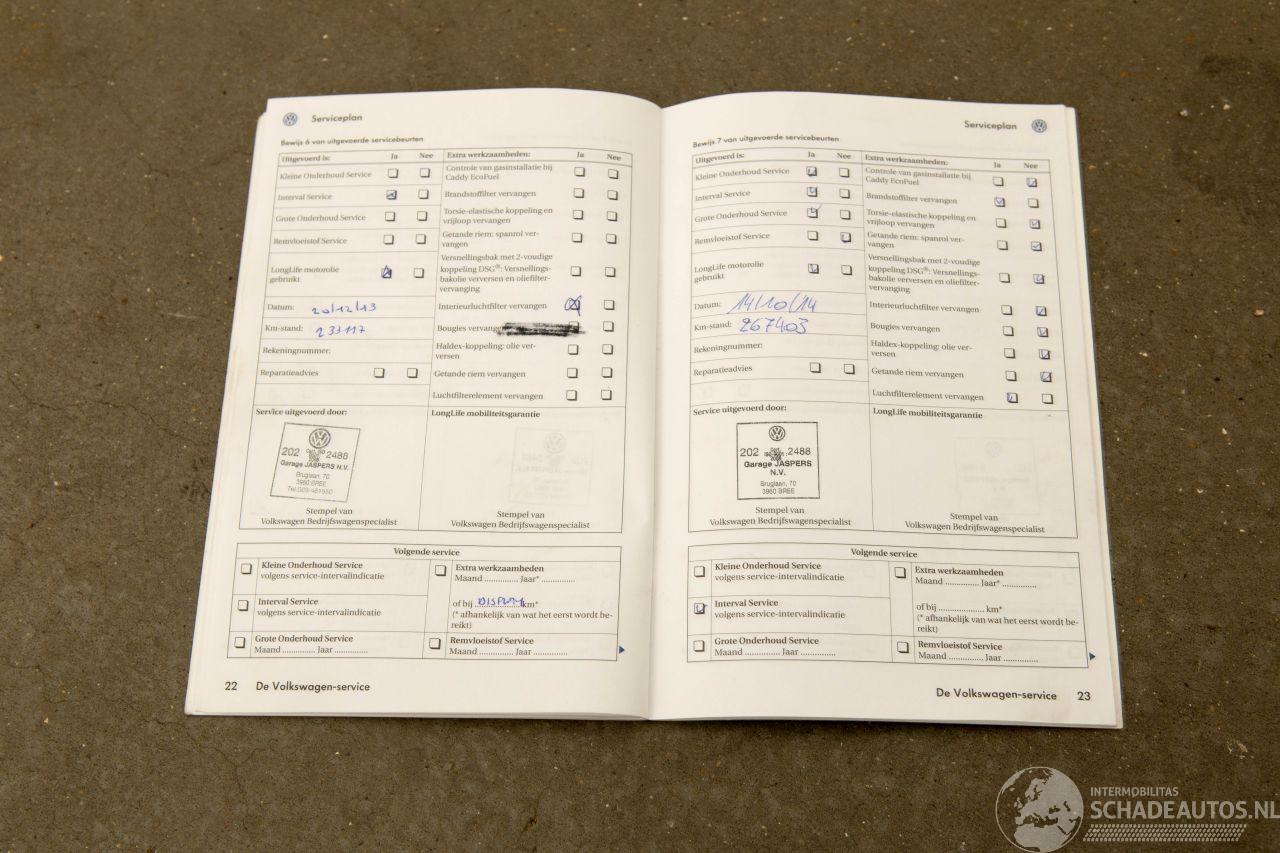 Serviceplan
Bewijs 6 van uitgevoerde servicebeurten
Uitgevoerd is: Ja Nee
Kleine Onderhoud Service
Interval Service
Grote Onderhoud Service
Remvloeistof Service
LongLife motorolie
gebruikt
Datum: 20/12/13
Km-stand: 233117
Rekeningnummer:
Reparatieadvies
Extra werkzaamheden: Ja Nee
Controle van gasinstallatie bij
Caddy EcoFuel
Brandstoffilter vervangen
Torsie-elastische koppeling en
vrijloop vervangen
Getande riem: spanrol ver-
vangen
Versnellingsbak met 2-voudige
koppeling DSG®: Versnellings-
bakolie verversen en oliefilter-
vervanging
Interieurluchtfilter vervangen
Bougies
Haldex-koppeling: olie ver-
versen
Getande riem vervangen
Luchtfilterelement vervangen
Service uitgevoerd door:
202 2488
Garage JASPERS N.V.
Bruglaan, 70
3960 BREE
Stempel van
Volkswagen Bedrijfswagenspecialist
LongLife mobiliteitsgarantie
Stempel van
Volkswagen Bedrijfswagenspecialist
Volgende service
Kleine Onderhoud Service
volgens service-intervalindicatie
Interval Service
volgens service-intervalindicatie
Grote Onderhoud Service
Maand ............. Jaar .............
Extra werkzaamheden
Maand ............. Jaar* .............
of bij DISPLAY km*
(* afhankelijk van wat het eerst wordt be-
reikt)
Remvloeistof Service
Maand ............. Jaar .............
22 De Volkswagen-service
Serviceplan
Bewijs 7 van uitgevoerde servicebeurten
Uitgevoerd is: Ja Nee
Kleine Onderhoud Service
Interval Service
Grote Onderhoud Service
Remvloeistof Service
LongLife motorolie
gebruikt
Datum: 14/10/14
Km-stand: 267403
Rekeningnummer:
Reparatieadvies
Extra werkzaamheden: Ja Nee
Controle van gasinstallatie bij
Caddy EcoFuel
Brandstoffilter vervangen
Torsie-elastische koppeling en
vrijloop vervangen
Getande riem: spanrol ver-
vangen
Versnellingsbak met 2-voudige
koppeling DSG®: Versnellings-
bakolie verversen en oliefilter-
vervanging
Interieurluchtfilter vervangen
Bougies vervangen
Haldex-koppeling: olie ver-
versen
Getande riem vervangen
Luchtfilterelement vervangen
Service uitgevoerd door:
202 2488
Garage JASPERS
N.V.
Bruglaan, 70
3960 BREE
Stempel van
Volkswagen Bedrijfswagenspecialist
LongLife mobiliteitsgarantie
Stempel van
Volkswagen Bedrijfswagenspecialist
Volgende service
Kleine Onderhoud Service
volgens service-intervalindicatie
Interval Service
volgens service-intervalindicatie
Grote Onderhoud Service
Maand ............. Jaar .............
Extra werkzaamheden
Maand ............. Jaar* .............
of bij ................. km*
(* afhankelijk van wat het eerst wordt be-
reikt)
Remvloeistof Service
Maand ............. Jaar .............
De Volkswagen-service 23
INTERMOBILITAS
SCHADEAUTOS.NL